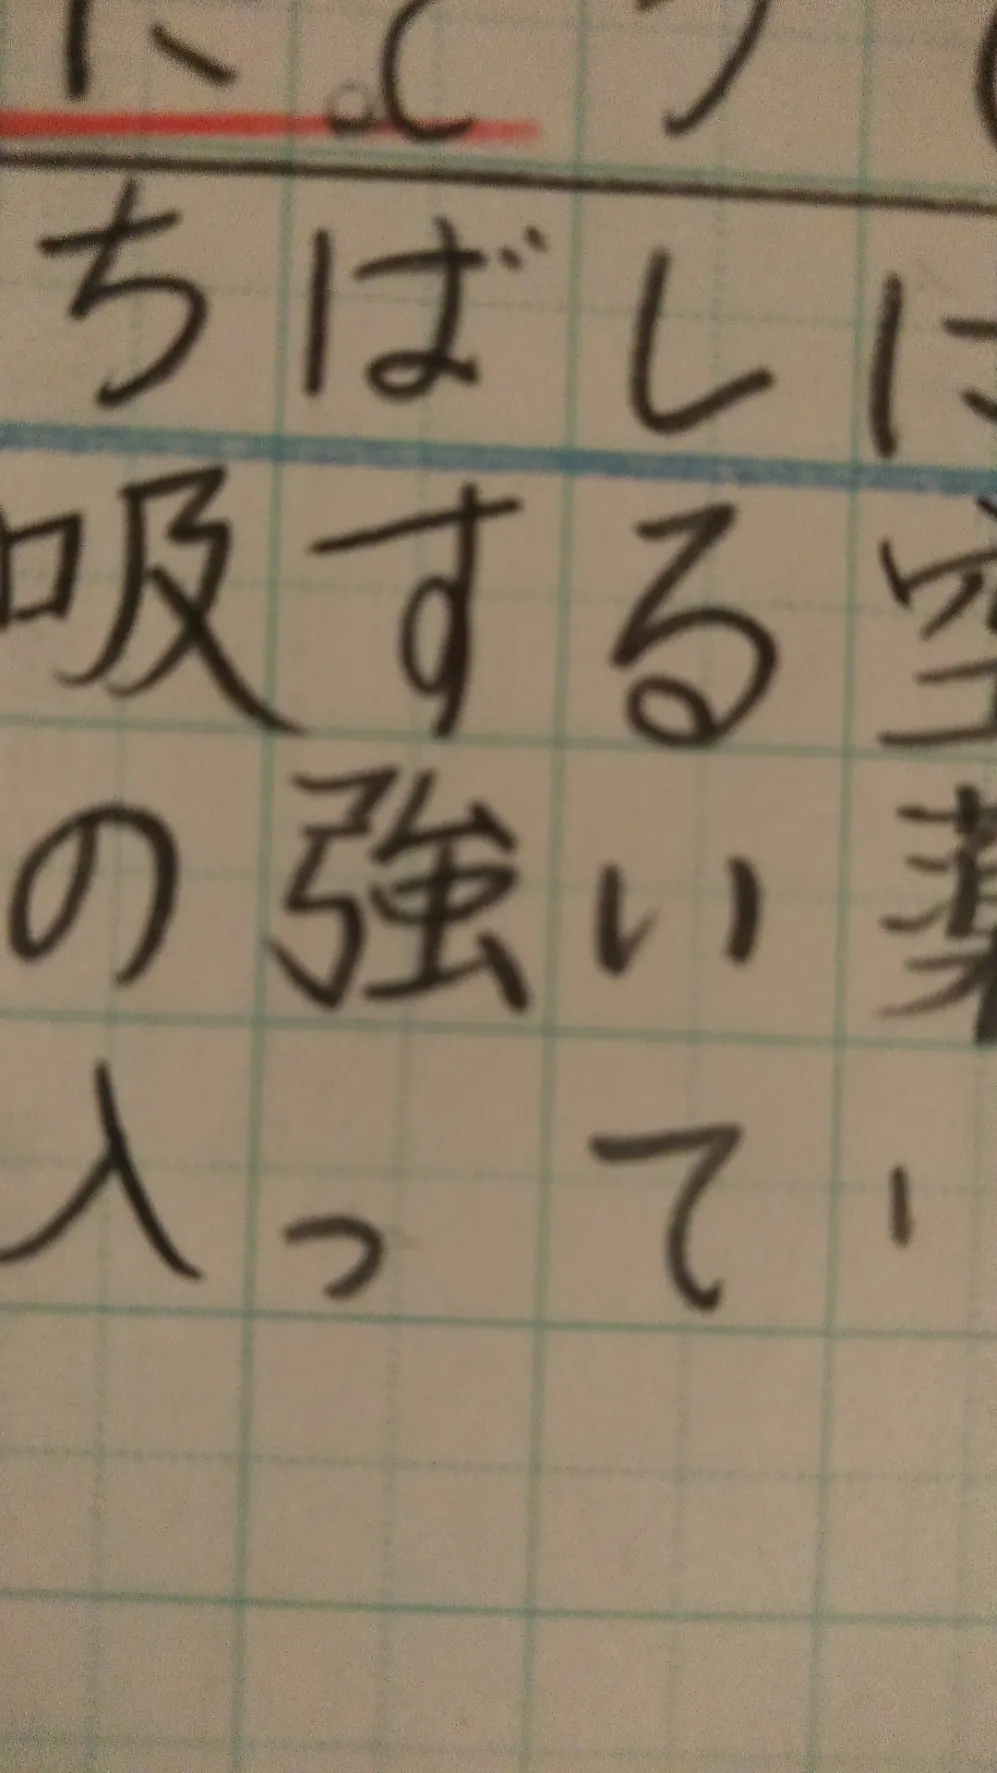 ちばしに
吸する空
の強い薬
入ってい